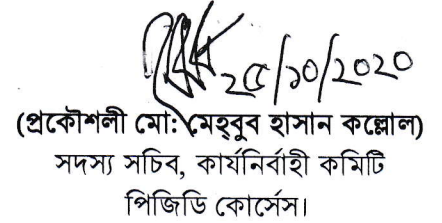 ২৫/১০/২০২০
(প্রকৌশলী মো: মেহ্বুব হাসান কল্লোল)
সদস্য সচিব, কার্যনির্বাহী কমিটি
পিজিডি কোর্সেস।